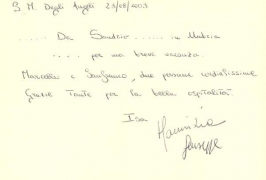 S. M. Degli Angeli 23/08/2003
..... Da Sondrio ...... in Umbria
..... per una breve vacanza.
Marcella e Gianfranco, due persone cordialissime
Grazie Tante per la bella ospitalità.
Isa
Giuseppe